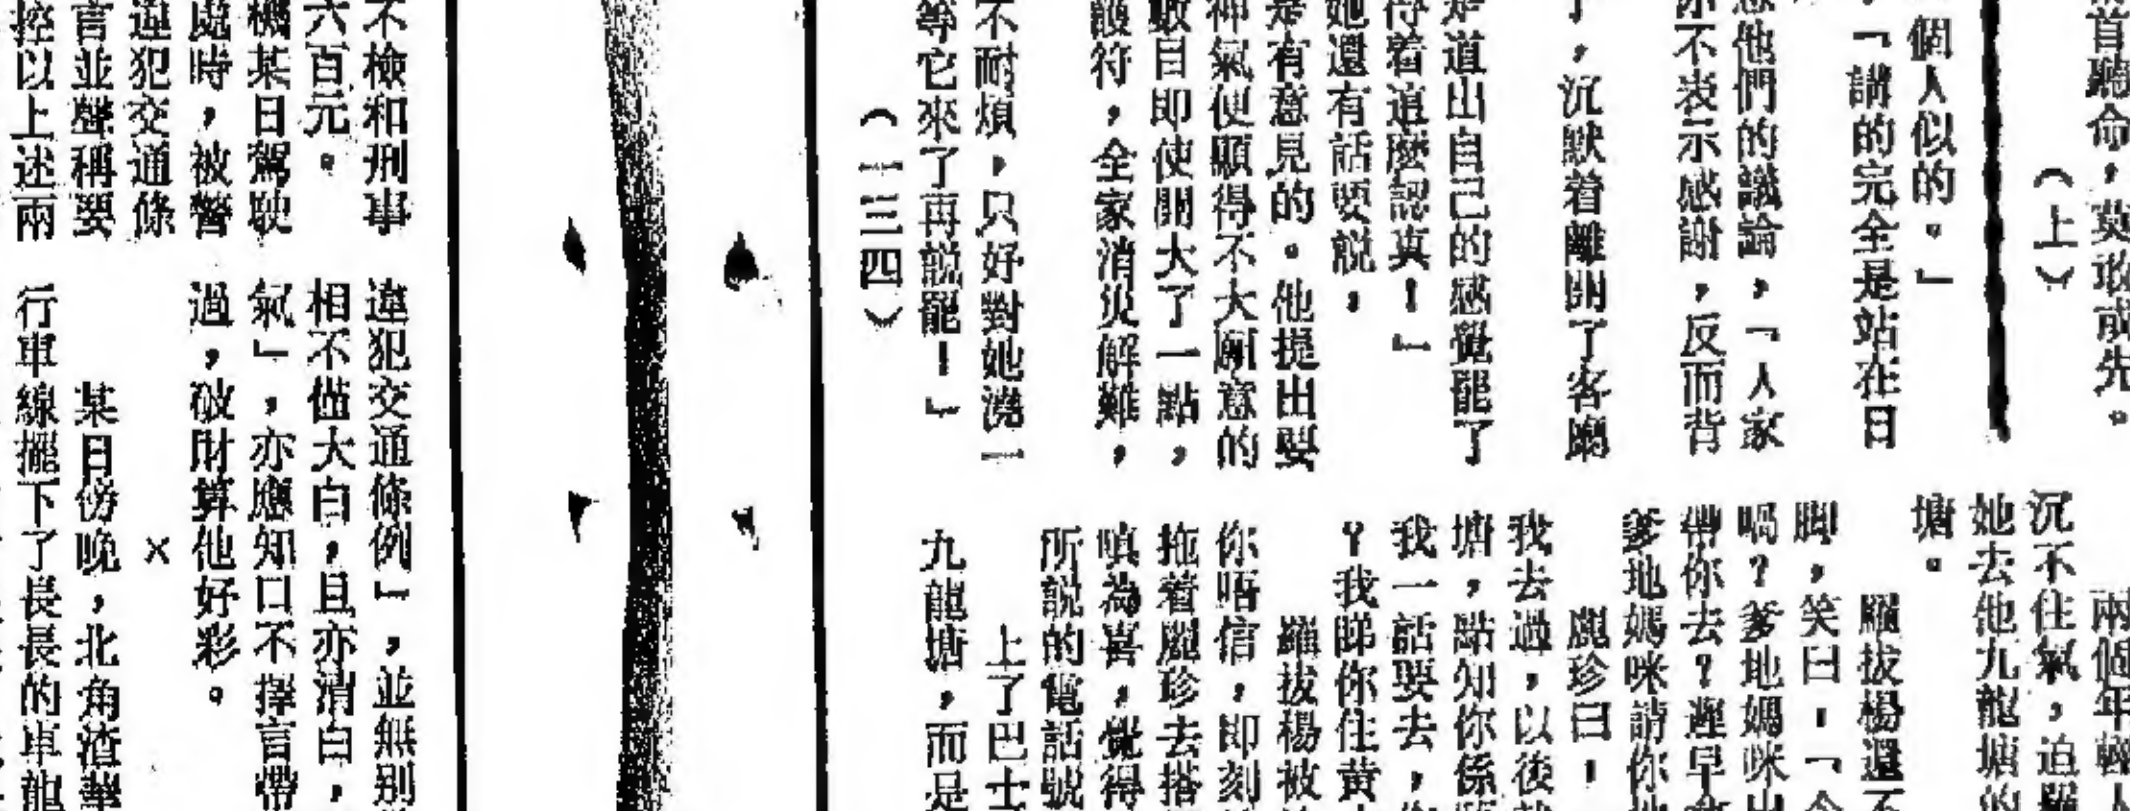 首聽命，莫敢或先。
（上）
個人似的。」
，「講的完全是站在日
他們的議論，「人家
你不表示感謝，反而背
了，沉默着離開了客廳
是道出自己的感覺罷了
得着這麼認真！」
她還有話要説，
是有意見的。他提出要
神氣便顯得不大願意的
數目即使開大了一點，
護符，全家消災解難，
不耐煩，只好對她澆一
等它來了再説罷！」
（一三四）
兩個年輕人
沉不住氣，迫
她去他九龍塘的
塘。
羅拔楊還不
脚，笑曰：「今
喎？爹地媽咪出
帶你去？遲早會
爹地媽咪請你
麗珍曰：
我去過，以後
塘，點知你係
我一話要去，
？我睇你住黃
羅拔楊被
你唔信，即刻
拖着麗珍去搭
嗔為喜，覺得
所説的電話號
上了巴士
九龍塘，而是
不檢和刑事
六百元。
機某日駕駛
處時，被警
違犯交通條
言並聲稱要
控以上述兩
違犯交通條例」，並無别
相不僅大白，且亦清白，
氣」，亦應知口不擇言帶
過，破財算他好彩。
×
某日傍晚，北角渣華
行車線擺下了長長的車龍